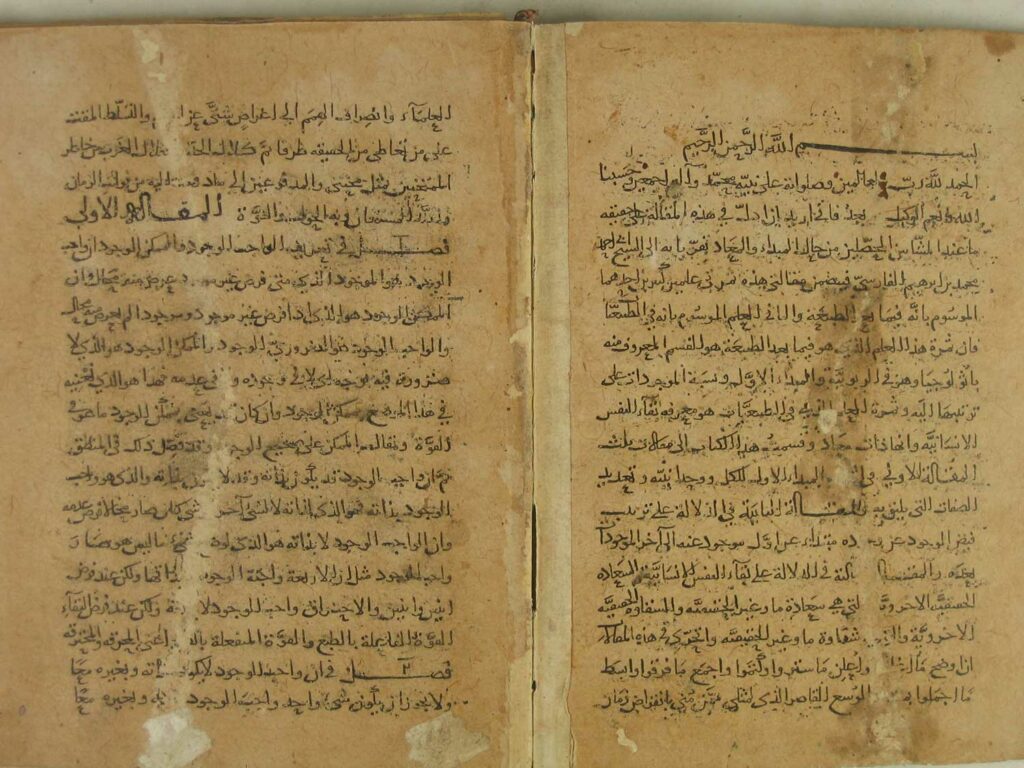 بسم الله الرحمن الرحيم
الحمد لله رب العالمين وصلواته على نبيه محمد وآله اجمعين وحسبنا
الله ونعم الوكيل وبعد فاني اريد ان ادل في هذه المقالة على حقيقة
ما عند المشائين المحصلين من حال المبدء والمعاد تقربا به الى الشيخ
محمد بن ابرهيم الفارسي فيتضمن مقالتي هذه ثمرتي علمين كبيرين احدهما
الموسوم بانه فيما بعد الطبيعة والثاني العلم الموسوم بانه في الطبيعيات
فان ثمرة هذا العلم الذي هو فيما بعد الطبيعة هو القسم المعروف منه
باثولوجيا وهو في الربوبية والمبدء الاول ونسبة الموجودات على
ترتيبها اليه وثمرة العلم الذي في الطبيعيات هو معرفة بقاء النفس
الانسانية وانها ذات معاد وقسمت هذا الكتاب الى مقالات ثلث
المقالة الاولى في المبدء الاول للكل ووحدانيته وتعديد
الصفات التي يليق به المقالة الثانية في الدلالة على ترتيب
فيض الوجود عن وجوده مبتداء عن اول موجود عنه الى آخر الموجودات
بعده والمقالة الثالثة في الدلالة على بقاء النفس الانسانية والسعادة
الحقيقية الاخروية والتي هي سعادة ما وغير الحقيقية والشقاوة الحقيقية
الاخروية والتي شقاوة ما وغير الحقيقية واتحرى في هذه المقالة
ان اوضح ما واعلن ما ستروا وكتموا واجمع ما فرقوا وابسط
ما اجملوا الوسع القاصر الذي لمثلي ممن مني بانقراض زمان
العلماء وانصراف الهمم الى اغراض شتى عن والتسلط المقت
على من تعاطى من الحقيقة طرفا ثم كلال الحد من خاطر
الممتحنين بمثل محنتي والمدفوعين الى ما دفعت اليه من نوائب الزمان
والله المستعان وبه الحول والقوة المقالة الاولى
فصل آ في تعريف الواجب الوجود والممكن الوجود ان واجب
الوجود هو الموجود الذي متى فرض غير موجود عرض منه محال وان
الممكن الوجود هو الذي اذا فرض غير موجود وموجودا لم يعرض منه محال
والواجب الوجود هو الضروري الوجود والممكن الوجود هو الذي لا
ضرورة فيه بوجه اي لا في وجوده ولا في عدمه فهذا هو الذي نعنيه
في هذا الموضع بممكن الوجود وان كان قد يعنى بممكن الوجود ما هو في
القوة ويقال الممكن على صحيح الوجود وقد فصل ذلك في المنطق
ثم ان واجب الوجود قد يكون بذاته وقد لا يكون بذاته والذي هو واجب
الوجود بذاته فهو الذي لذاته لا لشيء آخر اي شيء كان صار محالا فرض عدمه
وان الواجب الوجود لا بذاته هو الذي لو وضع شيء ما ليس هو صار
واجب الوجود مثلا ان الاربعة واجبة الوجود لا بذاتها ولكن عند فرض
اثنين واثنين والاحتراق واجب الوجود لا بذاته ولكن عند فرض التقاء
القوة الفاعلة بالطبع والقوة المنفعلة بالطبع اعني المحرقة والمحترقة
فصل ٢ في ان واجب الوجود لا يكون بذاته وبغيره معا
ولا يجوز ان يكون شيء واحد واجب الوجود بذاته وبغيره معا